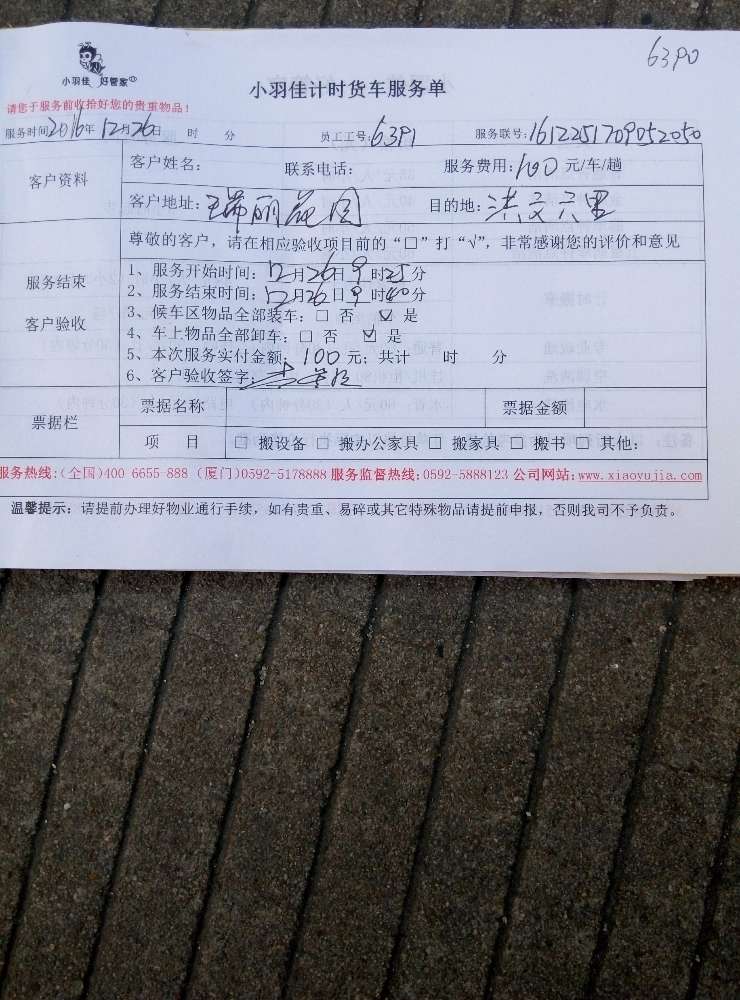 6390
小羽佳 好管家
小羽佳计时货车服务单
请您于服务前收拾好您的贵重物品！
服务时间2016年 12月26日 时 分 员工工号：6391 服务联号：1612251709052050
客户资料
客户姓名： 联系电话： 服务费用：100 元/车/趟
客户地址：瑞丽花园 目的地：洪文六里
服务结束
客户验收
尊敬的客户，请在相应验收项目前的“□”打“√”，非常感谢您的评价和意见
1、服务开始时间：12月26日9时25分
2、服务结束时间：12月26日9时40分
3、候车区物品全部装车：□ 否 ☑ 是
4、车上物品全部卸车：□ 否 ☑ 是
5、本次服务实付金额：100元；共计 时 分
6、客户验收签字：
票据栏
票据名称 票据金额
项 目 □ 搬设备 □ 搬办公家具 □ 搬家具 □ 搬书 □ 其他：
服务热线：(全国)400 6655 888 (厦门)0592-5178888 服务监督热线：0592-5888123 公司网站：www.xiaoyujia.com
温馨提示：请提前办理好物业通行手续，如有贵重、易碎或其它特殊物品请提前申报，否则我司不予负责。